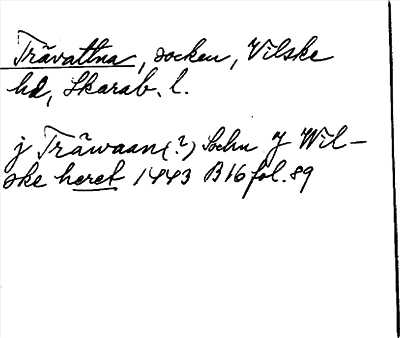 Trävattna, socken, Vilske
hd, Skarab. l.
j Träwaan(?) Sokn J Wil-
ske heret 1443 B16 fol. 89